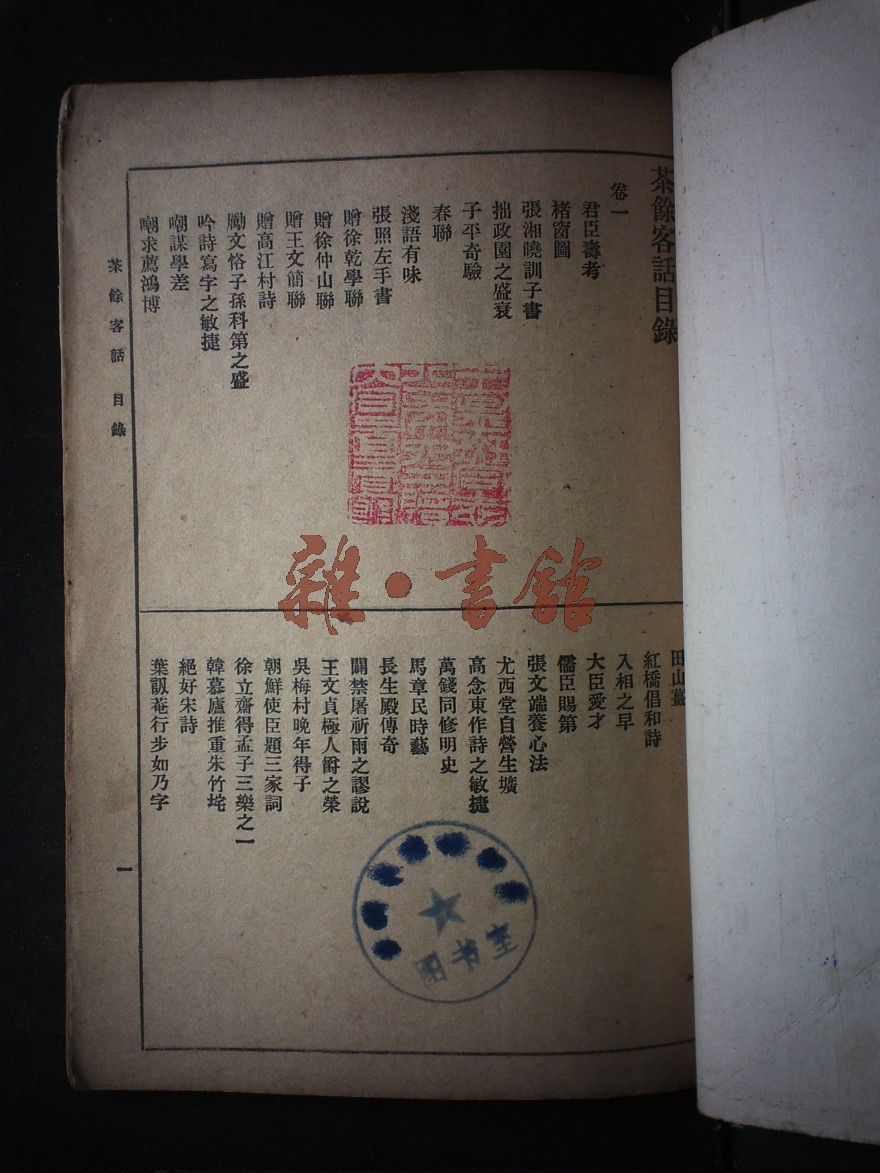 茶餘客話目錄
卷一
君臣壽考
楮窗圖
張湘曉訓子書
拙政園之盛衰
子平奇驗
春聯
淺語有味
張照左手書
贈徐乾學聯
贈徐仲山聯
贈王文簡聯
贈高江村詩
勵文恪子孫科第之盛
吟詩寫字之敏捷
嘲謀學差
嘲求薦鴻博
田山薑
紅橋倡和詩
入相之早
大臣愛才
儒臣賜第
張文端養心法
尤西堂自營生壙
高念東作詩之敏捷
萬錢同修明史
馬章民時藝
長生殿傳奇
闢禁屠祈雨之謬說
王文貞極人爵之榮
吳梅村晚年得子
朝鮮使臣題三家詞
徐立齋得孟子三樂之一
韓慕廬推重朱竹垞
絕好宋詩
葉訒菴行步如乃字
茶餘客話 目錄
一
雜·書館
图书室